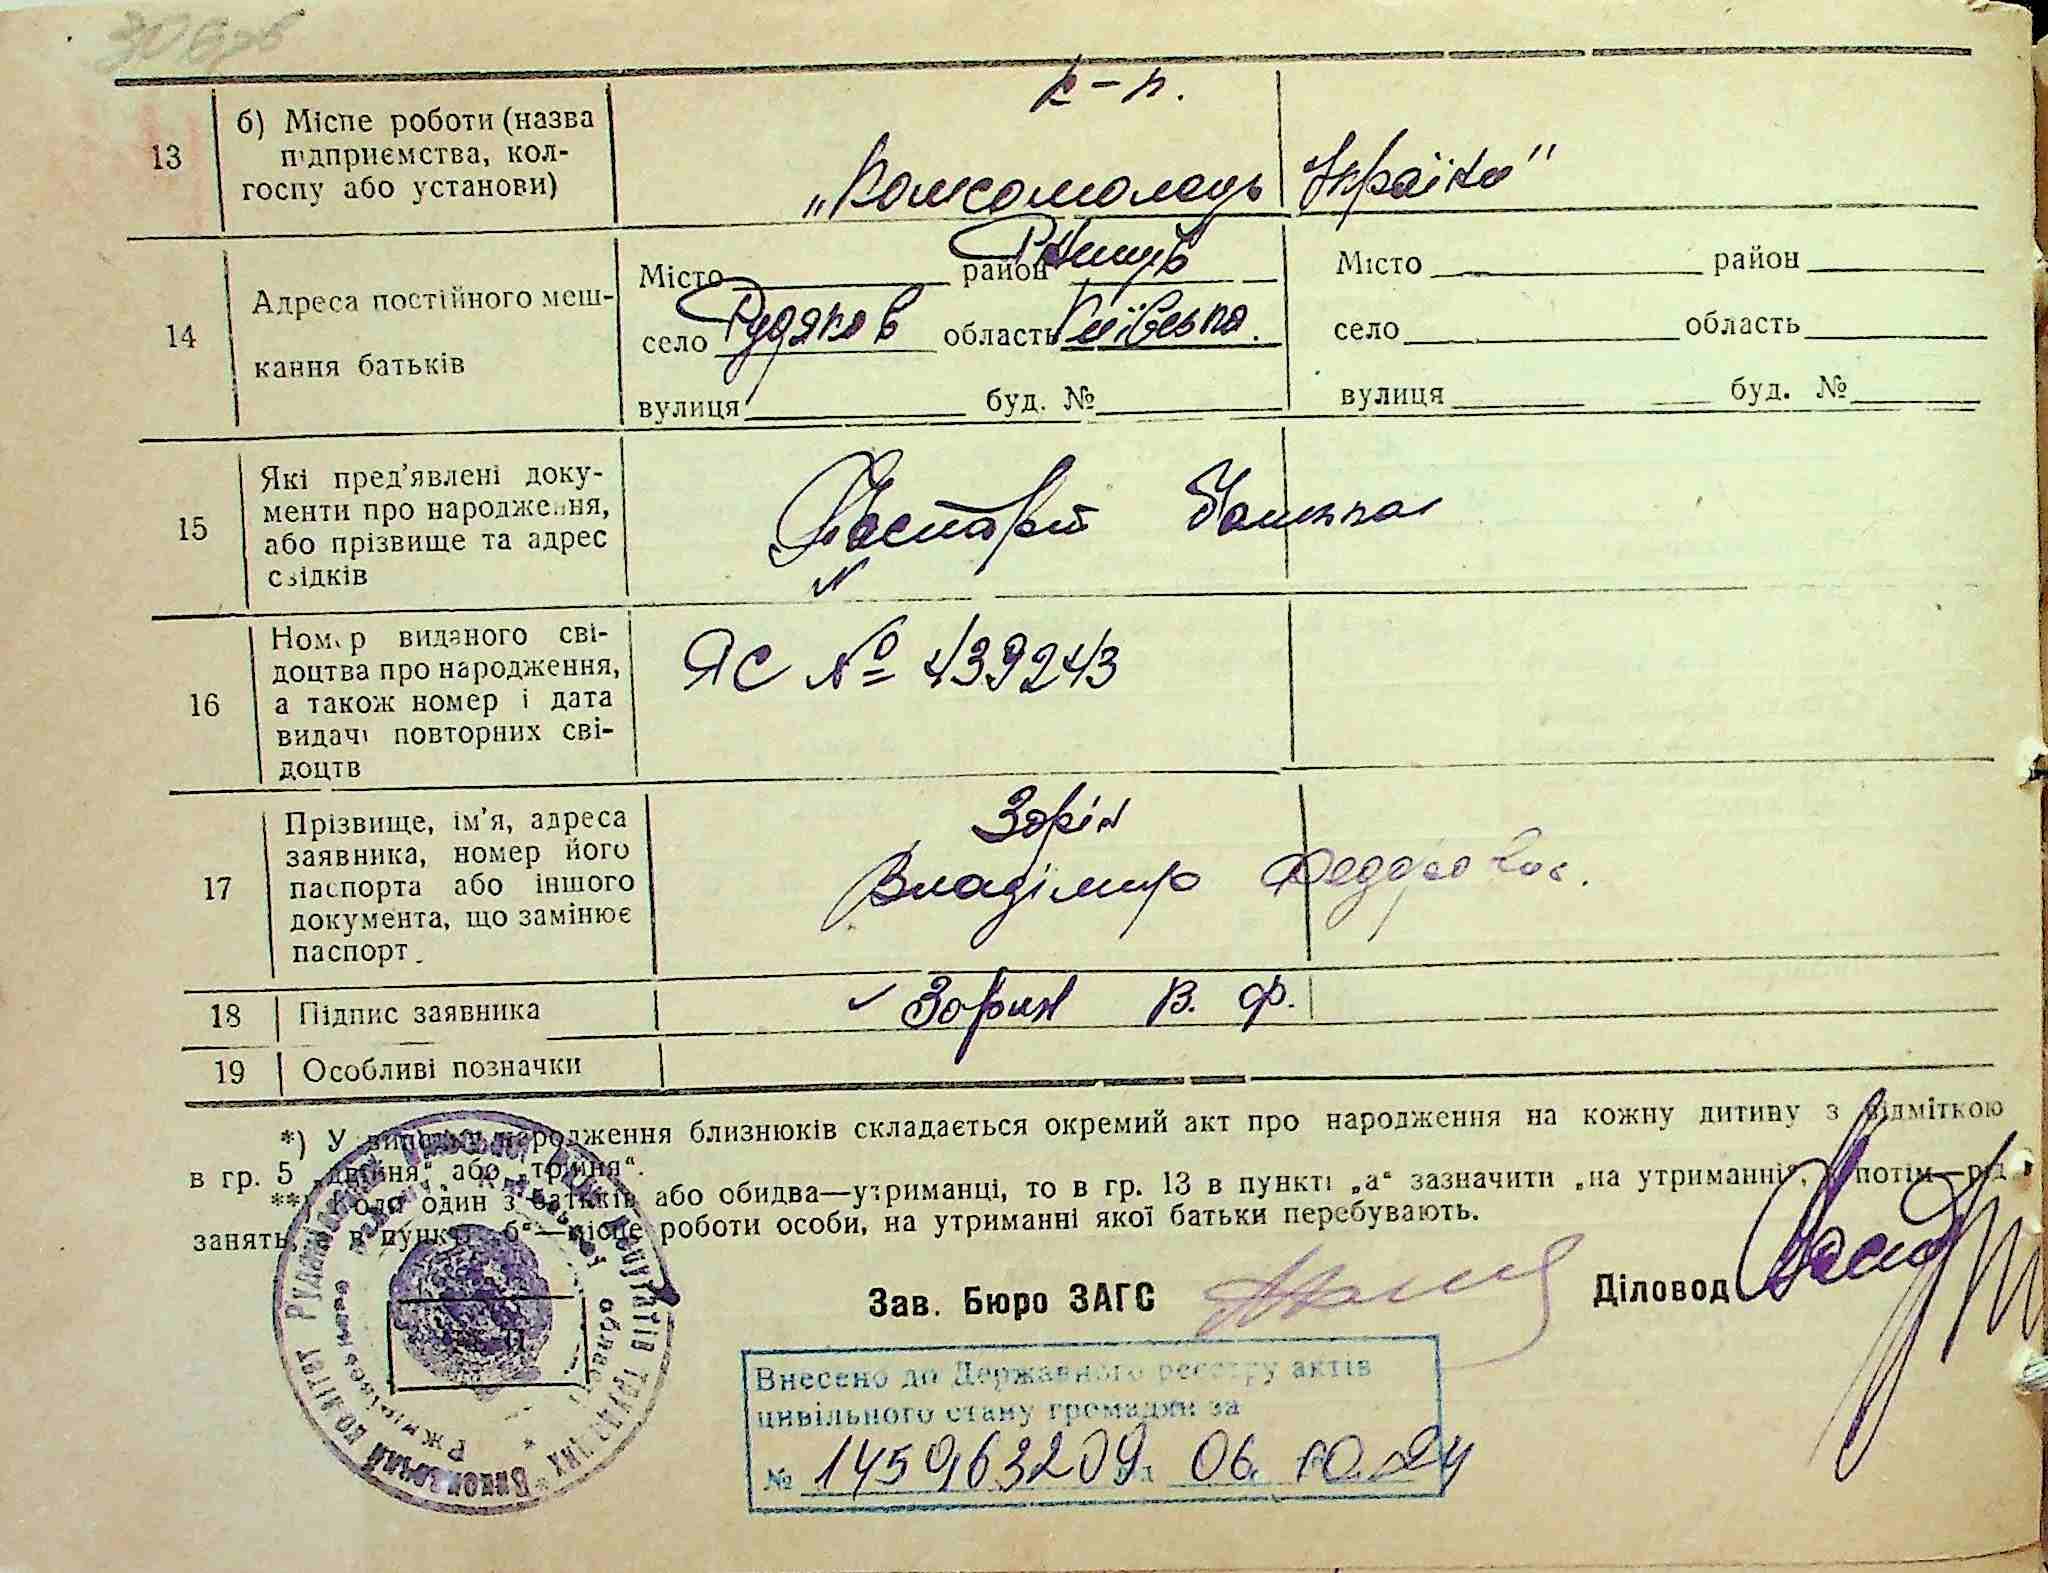 к-п.
13 б) Місце роботи (назва підприємства, колгоспу або установи) „Комсомолець України"
14 Адреса постійного мешкання батьків
Місто район Ржищів
село Рудяков область Київська.
вулиця буд. №
Місто район
село область
вулиця буд. №
15 Які пред’явлені документи про народження, або прізвище та адрес свідків
Паспорт батька
16 Номер виданого свідоцтва про народження, а також номер і дата видачі повторних свідоцтв
ЯС № 439243
17 Прізвище, ім’я, адреса заявника, номер його паспорта або іншого документа, що замінює паспорт.
Зорін
Владімир Федорович.
18 Підпис заявника Зорин В. Ф.
19 Особливі позначки
*) У випадку народження близнюків складається окремий акт про народження на кожну дитину з відміткою
в гр. 5 „двійня“ або „тройня“.
**) Коли один з батьків або обидва—утриманці, то в гр. 13 в пункті „а“ зазначити „на утриманні, а потім—рід
занять, а в пункті „б“—місце роботи особи, на утриманні якої батьки перебувають.
Зав. Бюро ЗАГС
Діловод
Внесено до Державного реєстру актів
цивільного стану громадян за
№ 145963209 від 06.10.24